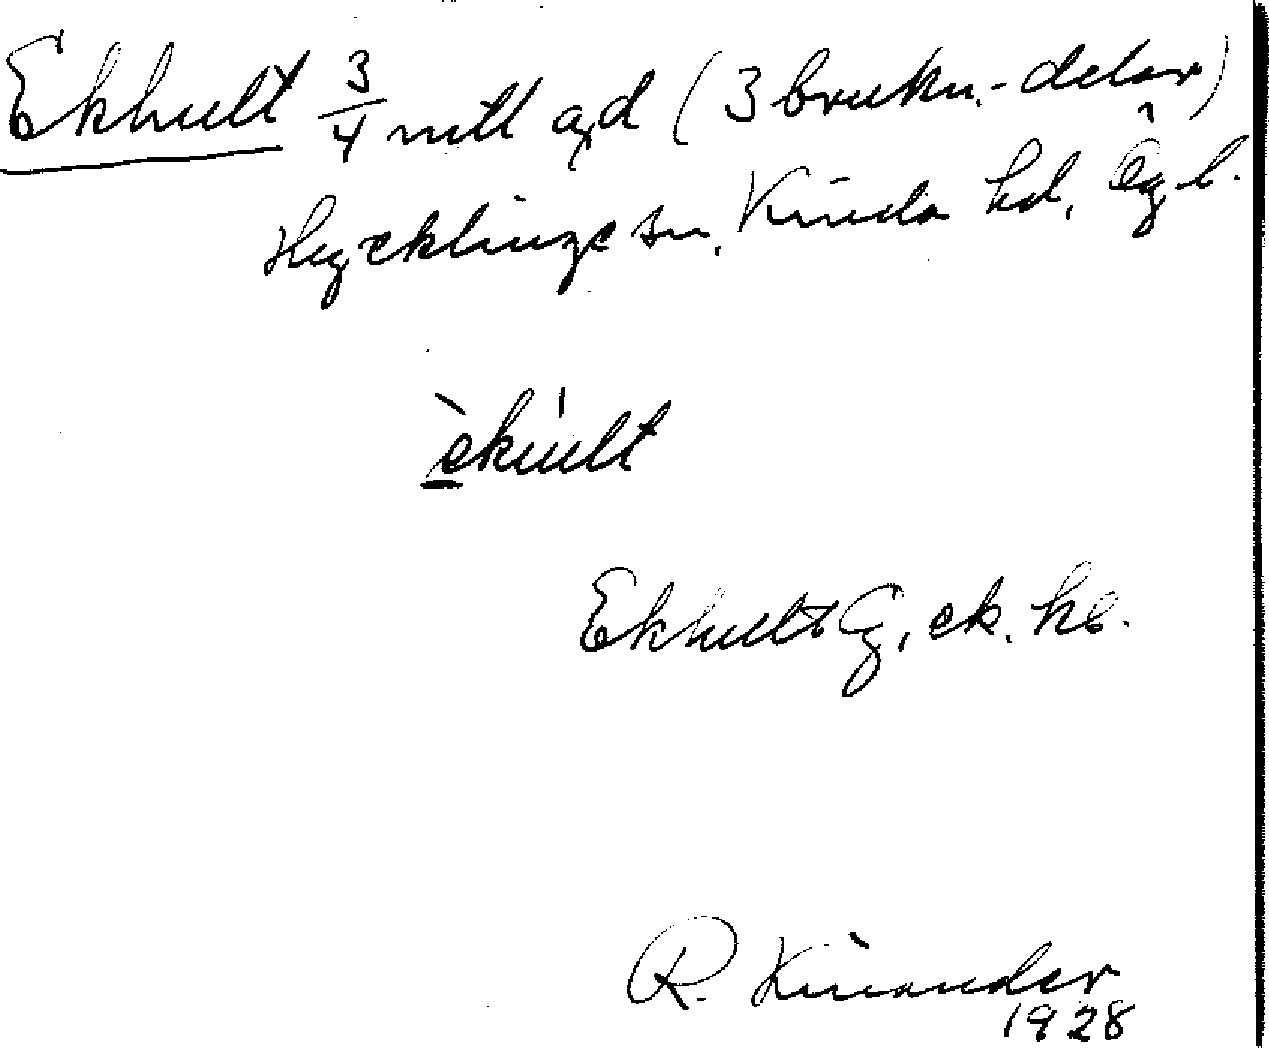 Ekhult 3/4 mtl gd (3 brukn.-delar)
Hycklinge sn, Kinda hd, Ög l.
èkúlt
Ekhult G, ek. kb.
R. Kinander
1928